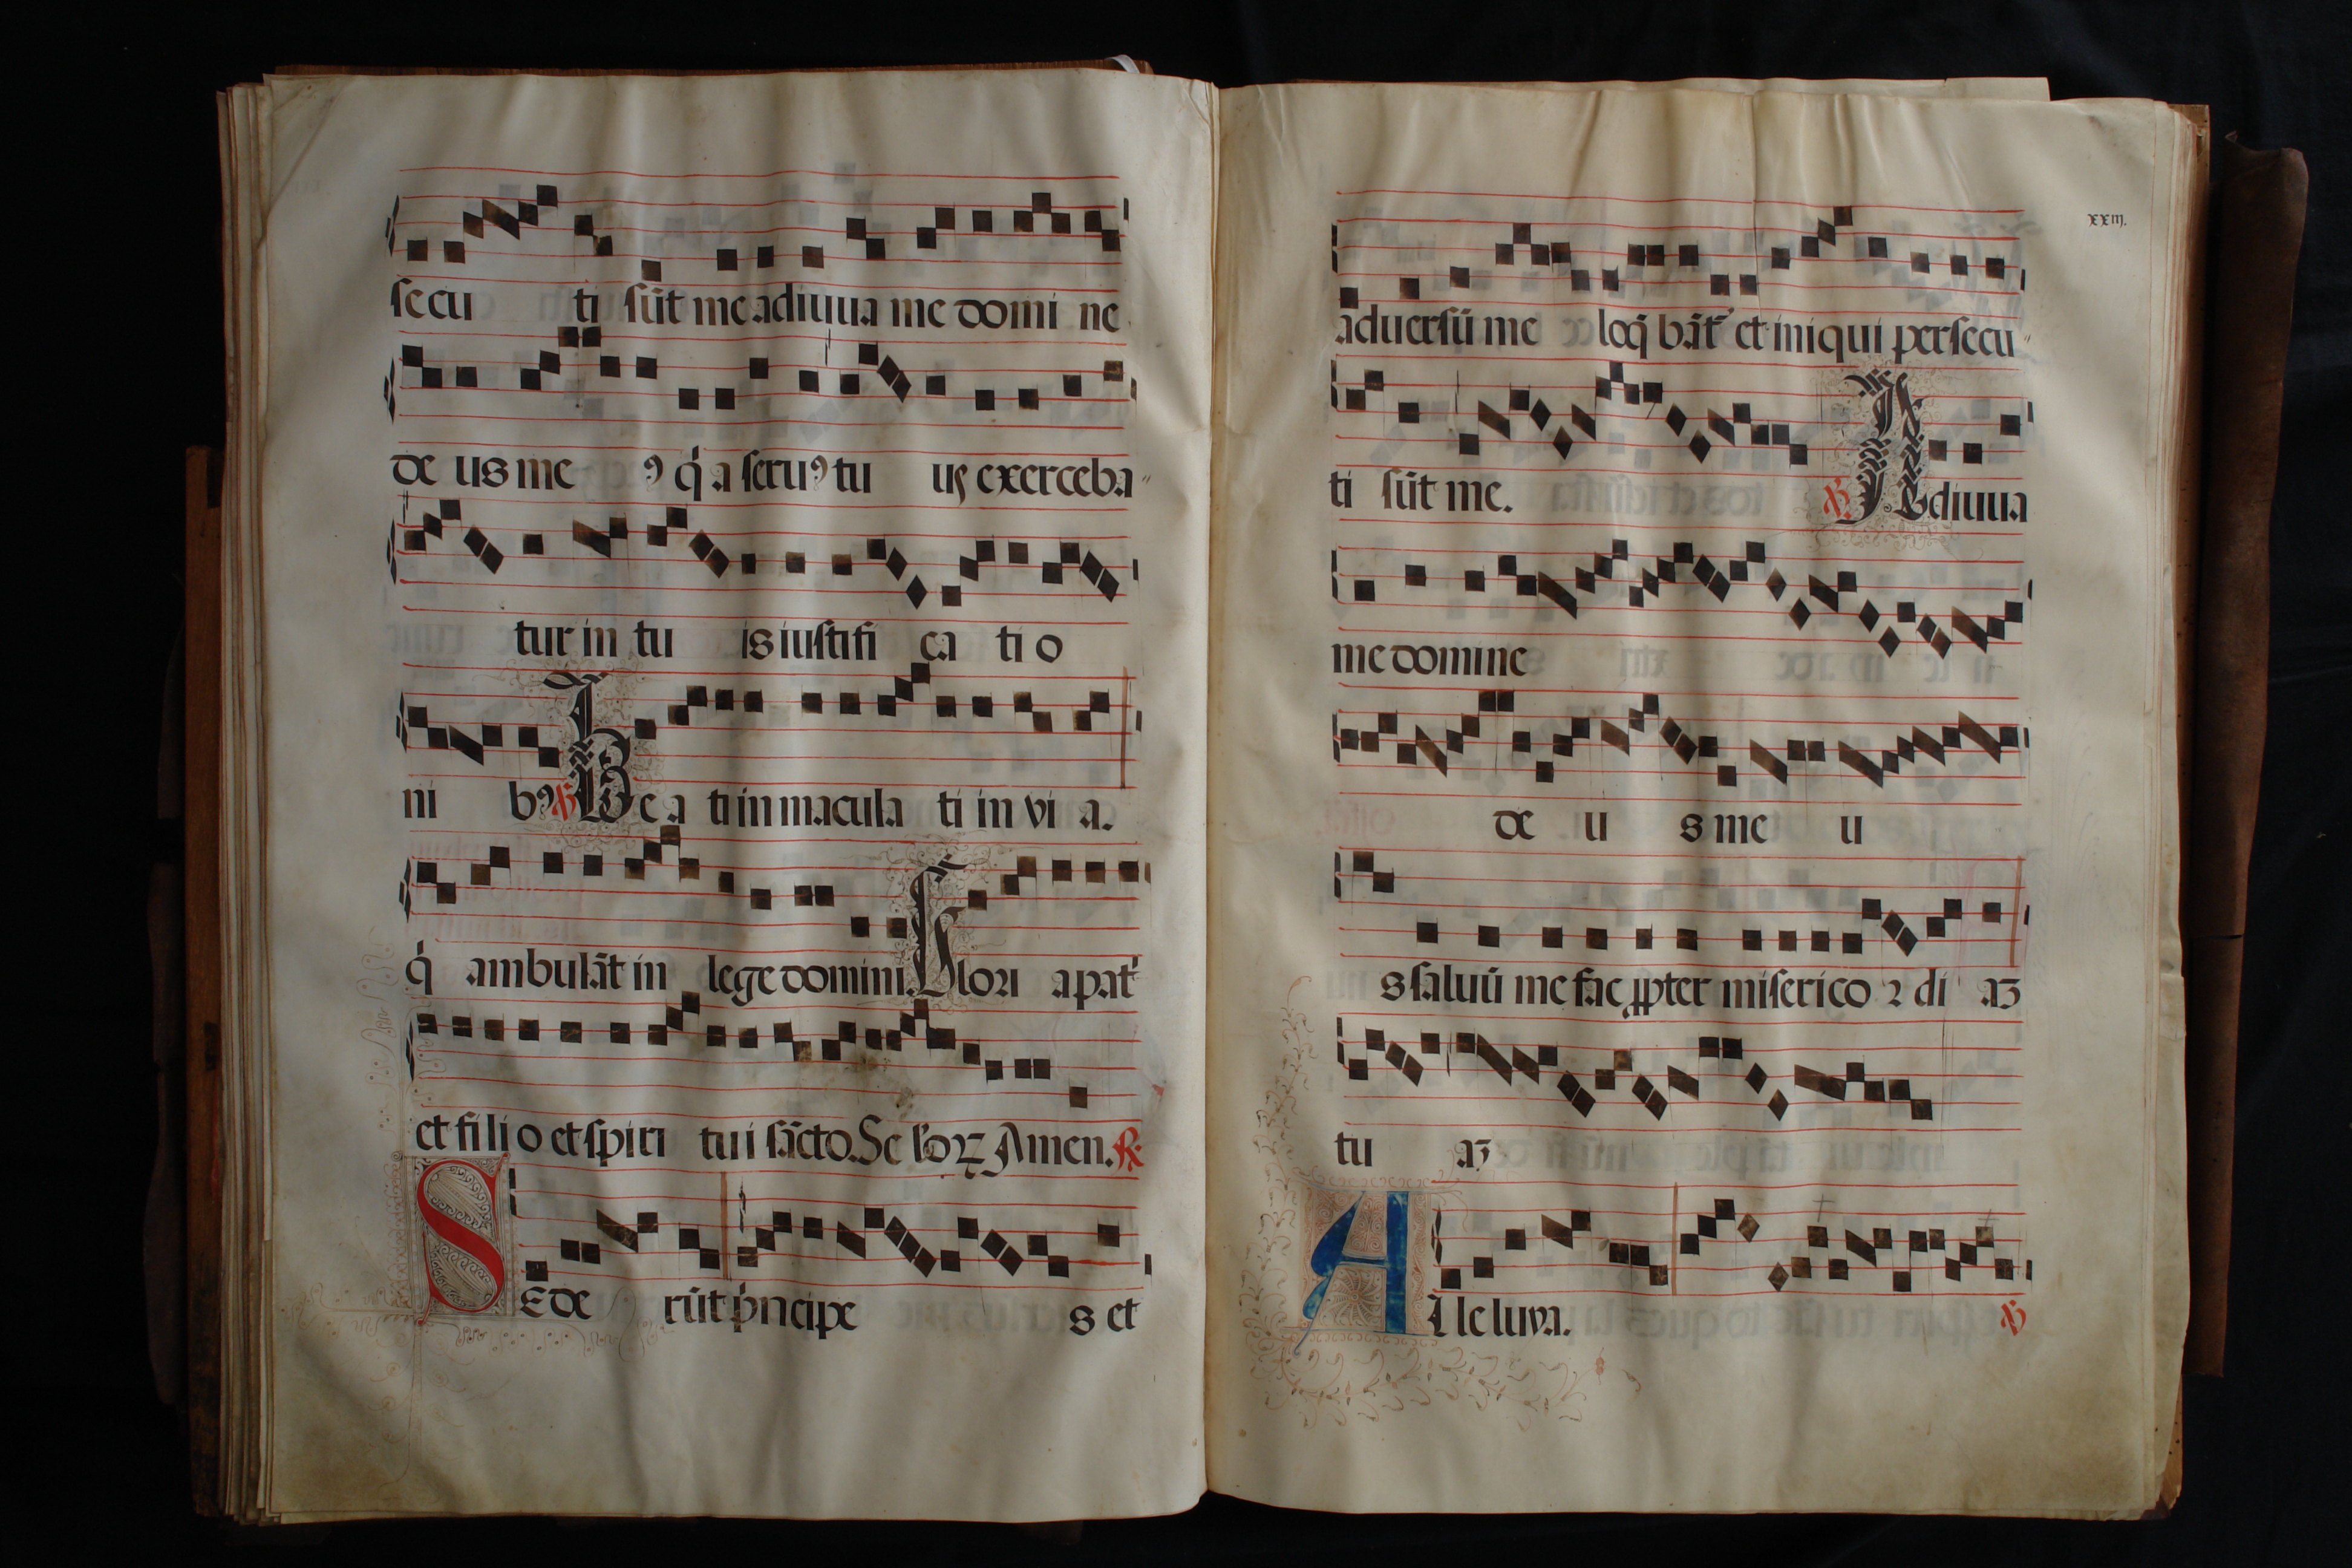 secu ti sūt me adiuua me domi ne
de us me ꝯ q̇ a seruꝯ tu us exerceba
tur in tu is iustifi ca ti o
ni bꝯ ℣ Be a ti inmacula ti in vi a.
q̇ ambulāt in lege domini. Glori a pat᷑
et fi li o et spiri tu i sācto. Se ło​ꝝ Amen. ℟.
SEde rūt pͥncipe s et
xxiij.
aduersū me loq̄ bāt᷑ et iniqui persecu
ti sūt me. ℣ Adiuua
me domine
de u s me u
s saluū me fac ꝓpter miserico ꝛ di aʒ
tu aʒ
Alleluya. ℣